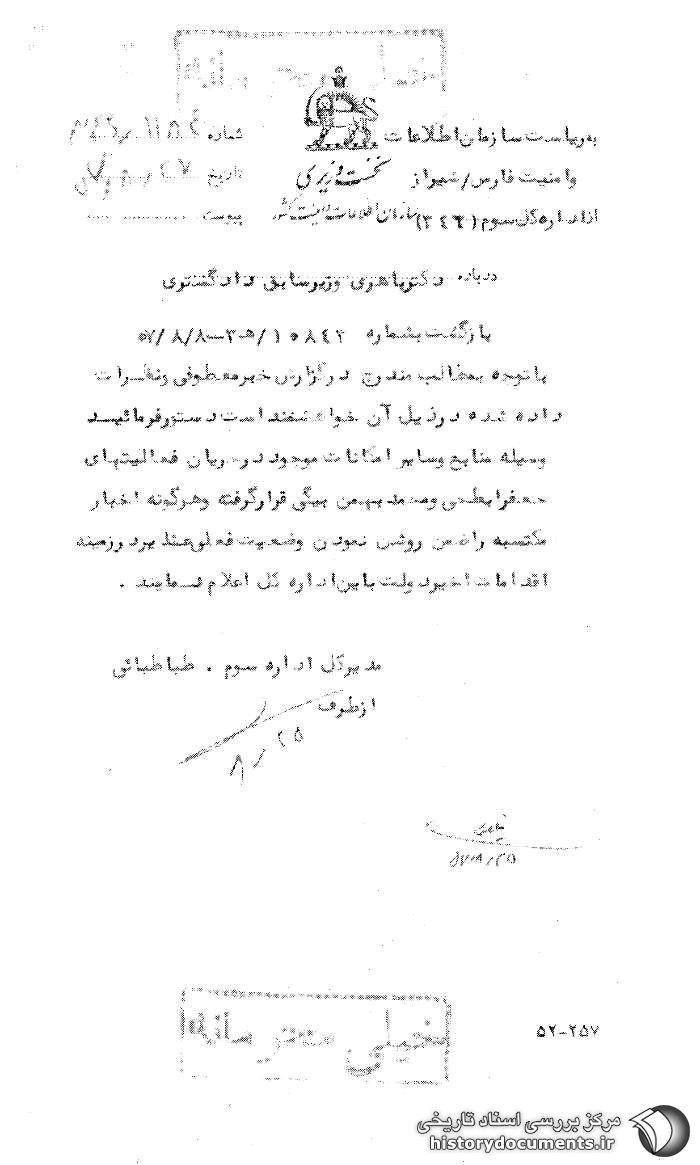 خیلی محرمانه
به ریاست سازمان اطلاعات
و امنیت فارس/شیراز
از اداره کل سوم (۳۴۲)
نخست وزیری
سازمان اطلاعات و امنیت کشور
شماره
تاریخ
پیوست
درباره دکتر باهری وزیر سابق دادگستری
بازگشت بشماره ۱۰۸۴۲/ه‍ ۳-۵۷/۸/۸
با توجه بمطالب مندرج در گزارش خبر معطوفی و نظرات
داده شده در ذیل آن خواهشمند است دستور فرمائید
وسیله منابع و سایر امکانات موجود در جریان فعالیتهای
جعفر ابطحی و محمد بهمن بیگی قرار گرفته و هرگونه اخبار
مکتسبه را ضمن روشن نمودن وضعیت فعلی در زمینه
اقدامات اخیر دولت باین اداره کل اعلام نمایند .
مدیر کل اداره سوم . طباطبائی
از طرف
۸/۲۵
۵۷/۸/۲۵
۵۲-۲۵۷
خیلی محرمانه
مرکز بررسی اسناد تاریخی
historydocuments.ir